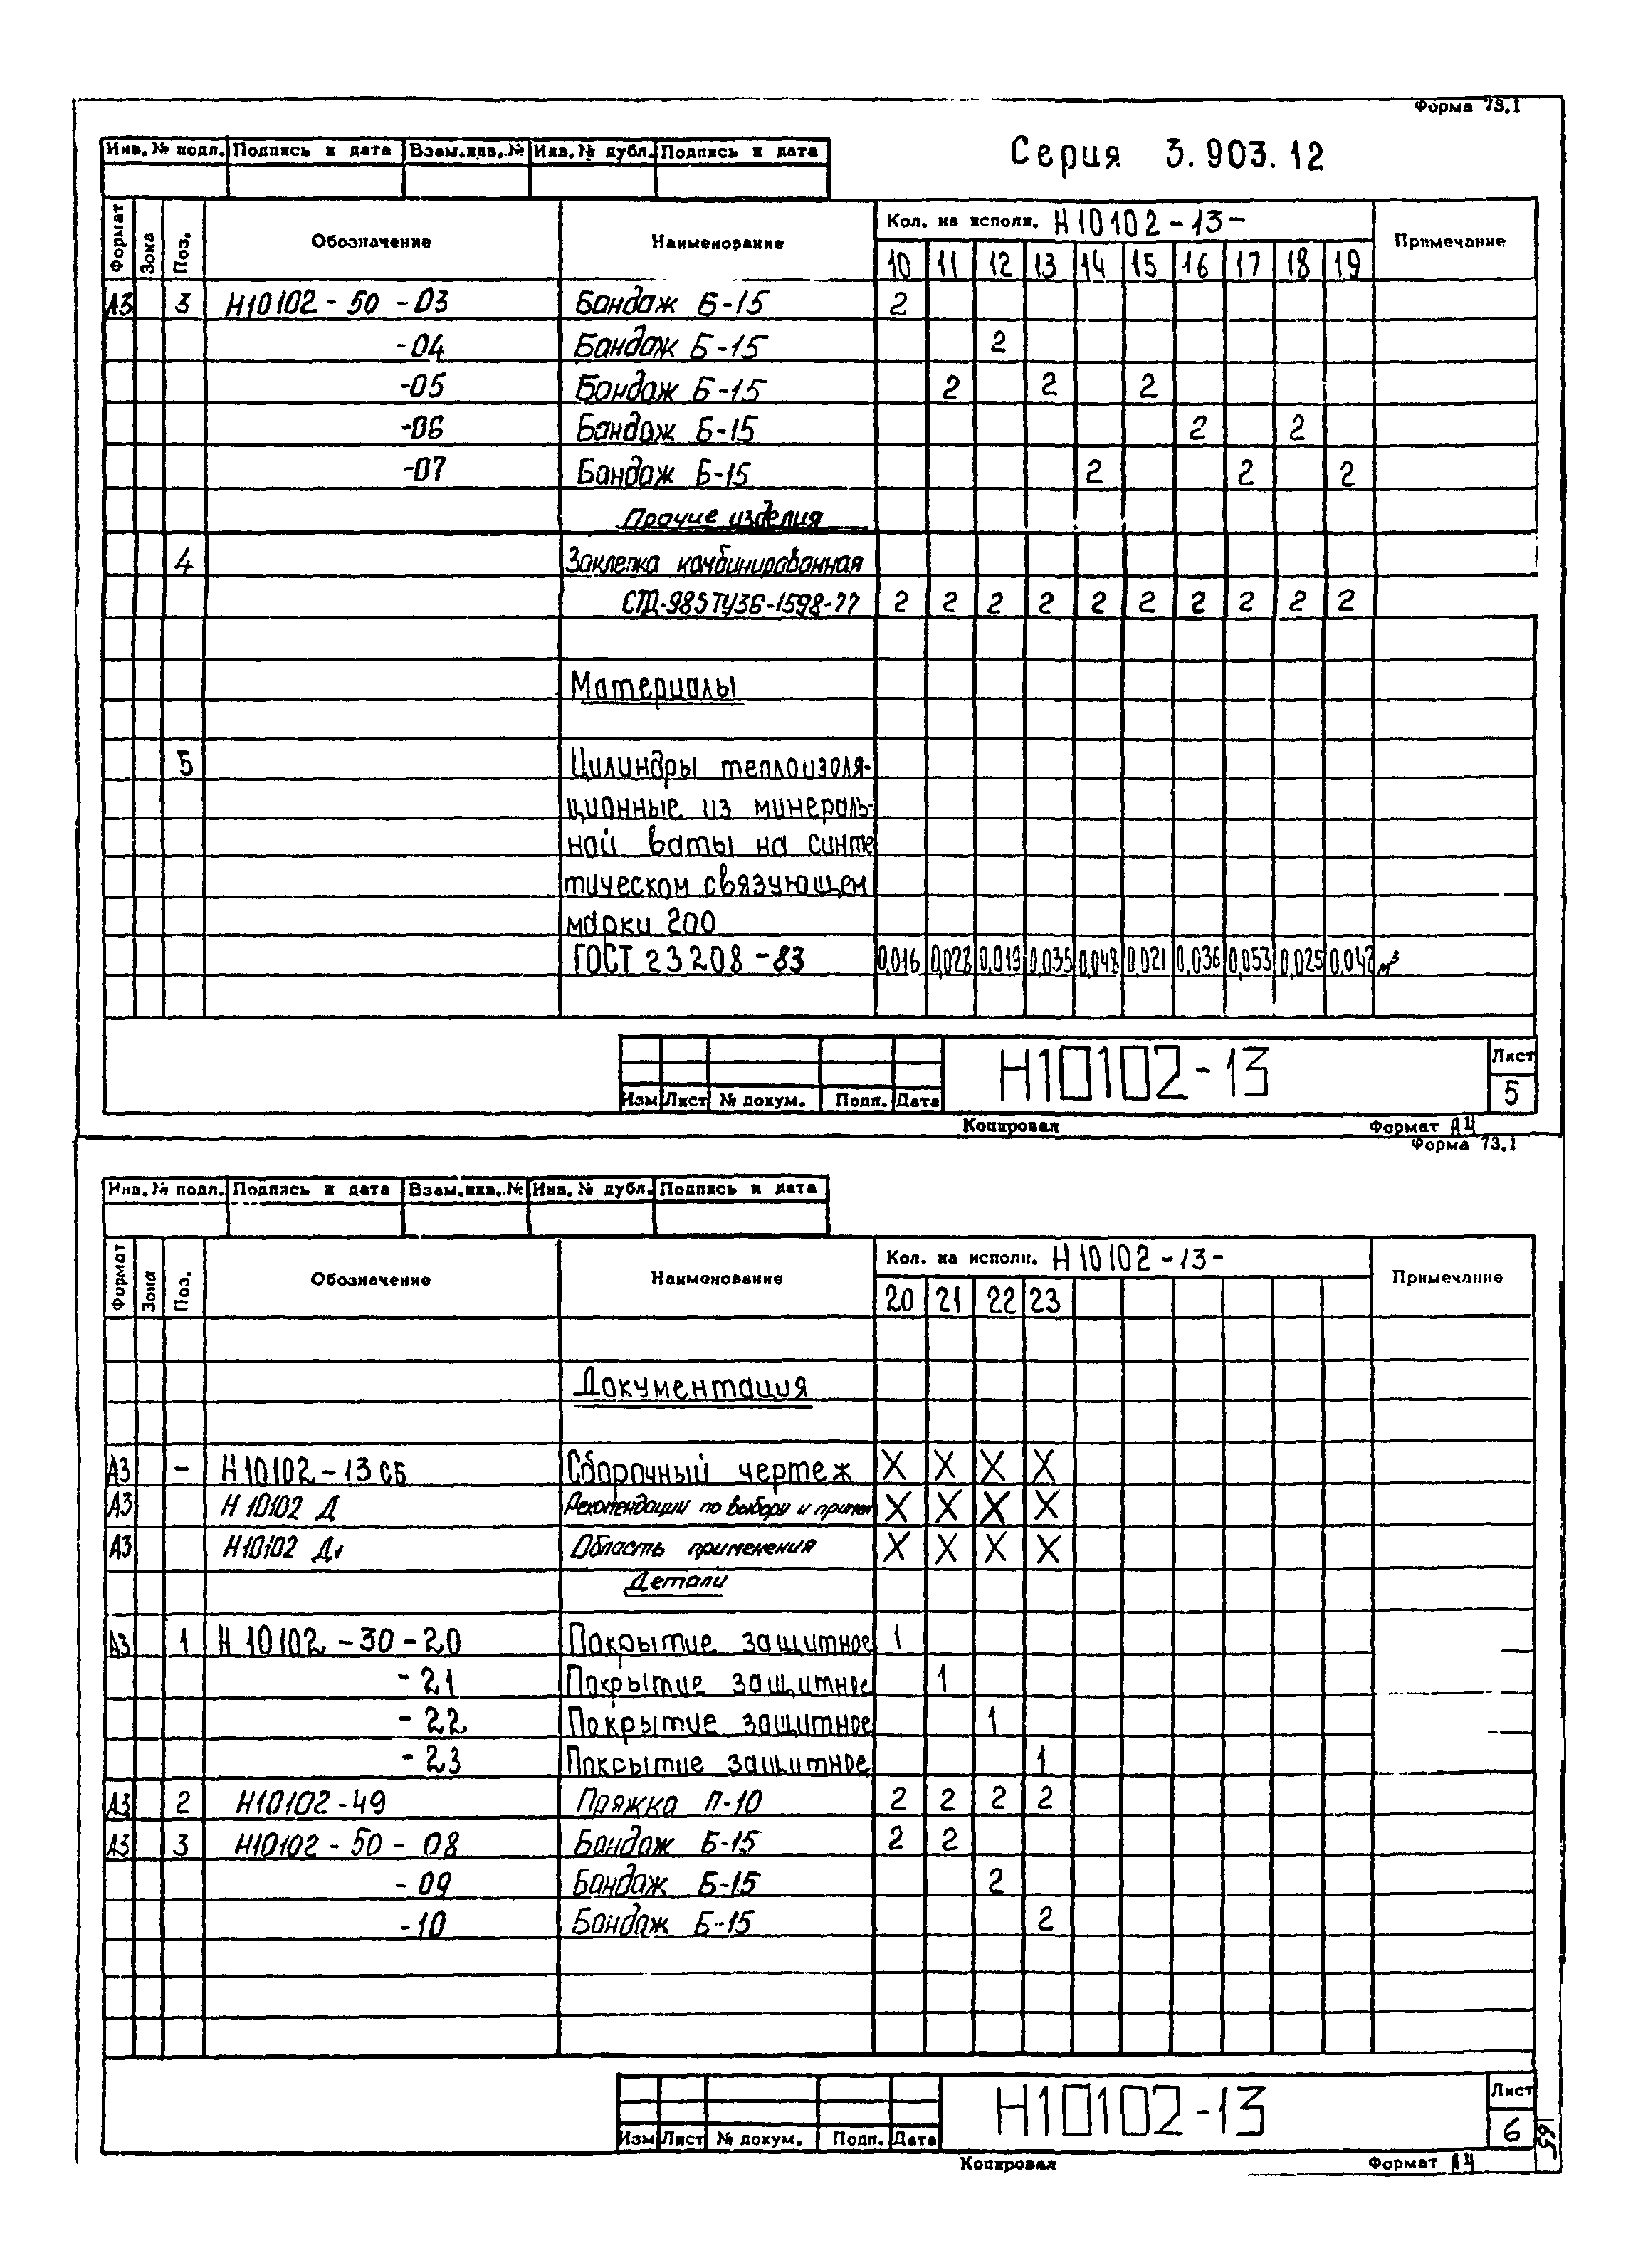 Форма 73.1
Серия 3.903.12
Инв. № подл. Подпись и дата Взам.инв.№ Инв.№ дубл. Подпись и дата
Формат Зона Поз. Обозначение Наименование Кол. на исполн. Н10102-13- Примечание
10 11 12 13 14 15 16 17 18 19
А3 3 Н10102-50-03 Бандаж Б-15 2
-04 Бандаж Б-15 2
-05 Бандаж Б-15 2 2 2
-06 Бандаж Б-15 2 2
-07 Бандаж Б-15 2 2 2
Прочие изделия
4 Заклепка комбинированная
СТД-985ТУ36-1598-77 2 2 2 2 2 2 2 2 2 2
Материалы
5 Цилиндры теплоизоля-
ционные из минераль-
ной ваты на синте
тическом связующем
марки 200
ГОСТ 23208-83 0,016 0,028 0,019 0,035 0,048 0,021 0,036 0,053 0,025 0,042 м³
Изм Лист № докум. Подп. Дата Н10102-13 Лист 5
Копировал Формат А4
Форма 73.1
Инв. № подл. Подпись и дата Взам.инв.№ Инв. № дубл. Подпись и дата
Формат Зона Поз. Обозначение Наименование Кол. на исполн. Н10102-13- Примечание
20 21 22 23
Документация
А3 - Н10102-13 СБ Сборочный чертеж X X X X
А3 Н10102 Д Рекомендации по выбору и примен X X X X
А3 Н10102 Д1 Область применения X X X X
Детали
А3 1 Н10102-30-20 Покрытие защитное 1
-21 Покрытие защитное 1
-22 Покрытие защитное 1
-23 Покрытие защитное 1
А3 2 Н10102-49 Пряжка П-10 2 2 2 2
А3 3 Н10102-50-08 Бандаж Б-15 2 2
-09 Бандаж Б-15 2
-10 Бандаж Б-15 2
Изм Лист № докум. Подп. Дата Н10102-13 Лист 6
Копировал Формат А4